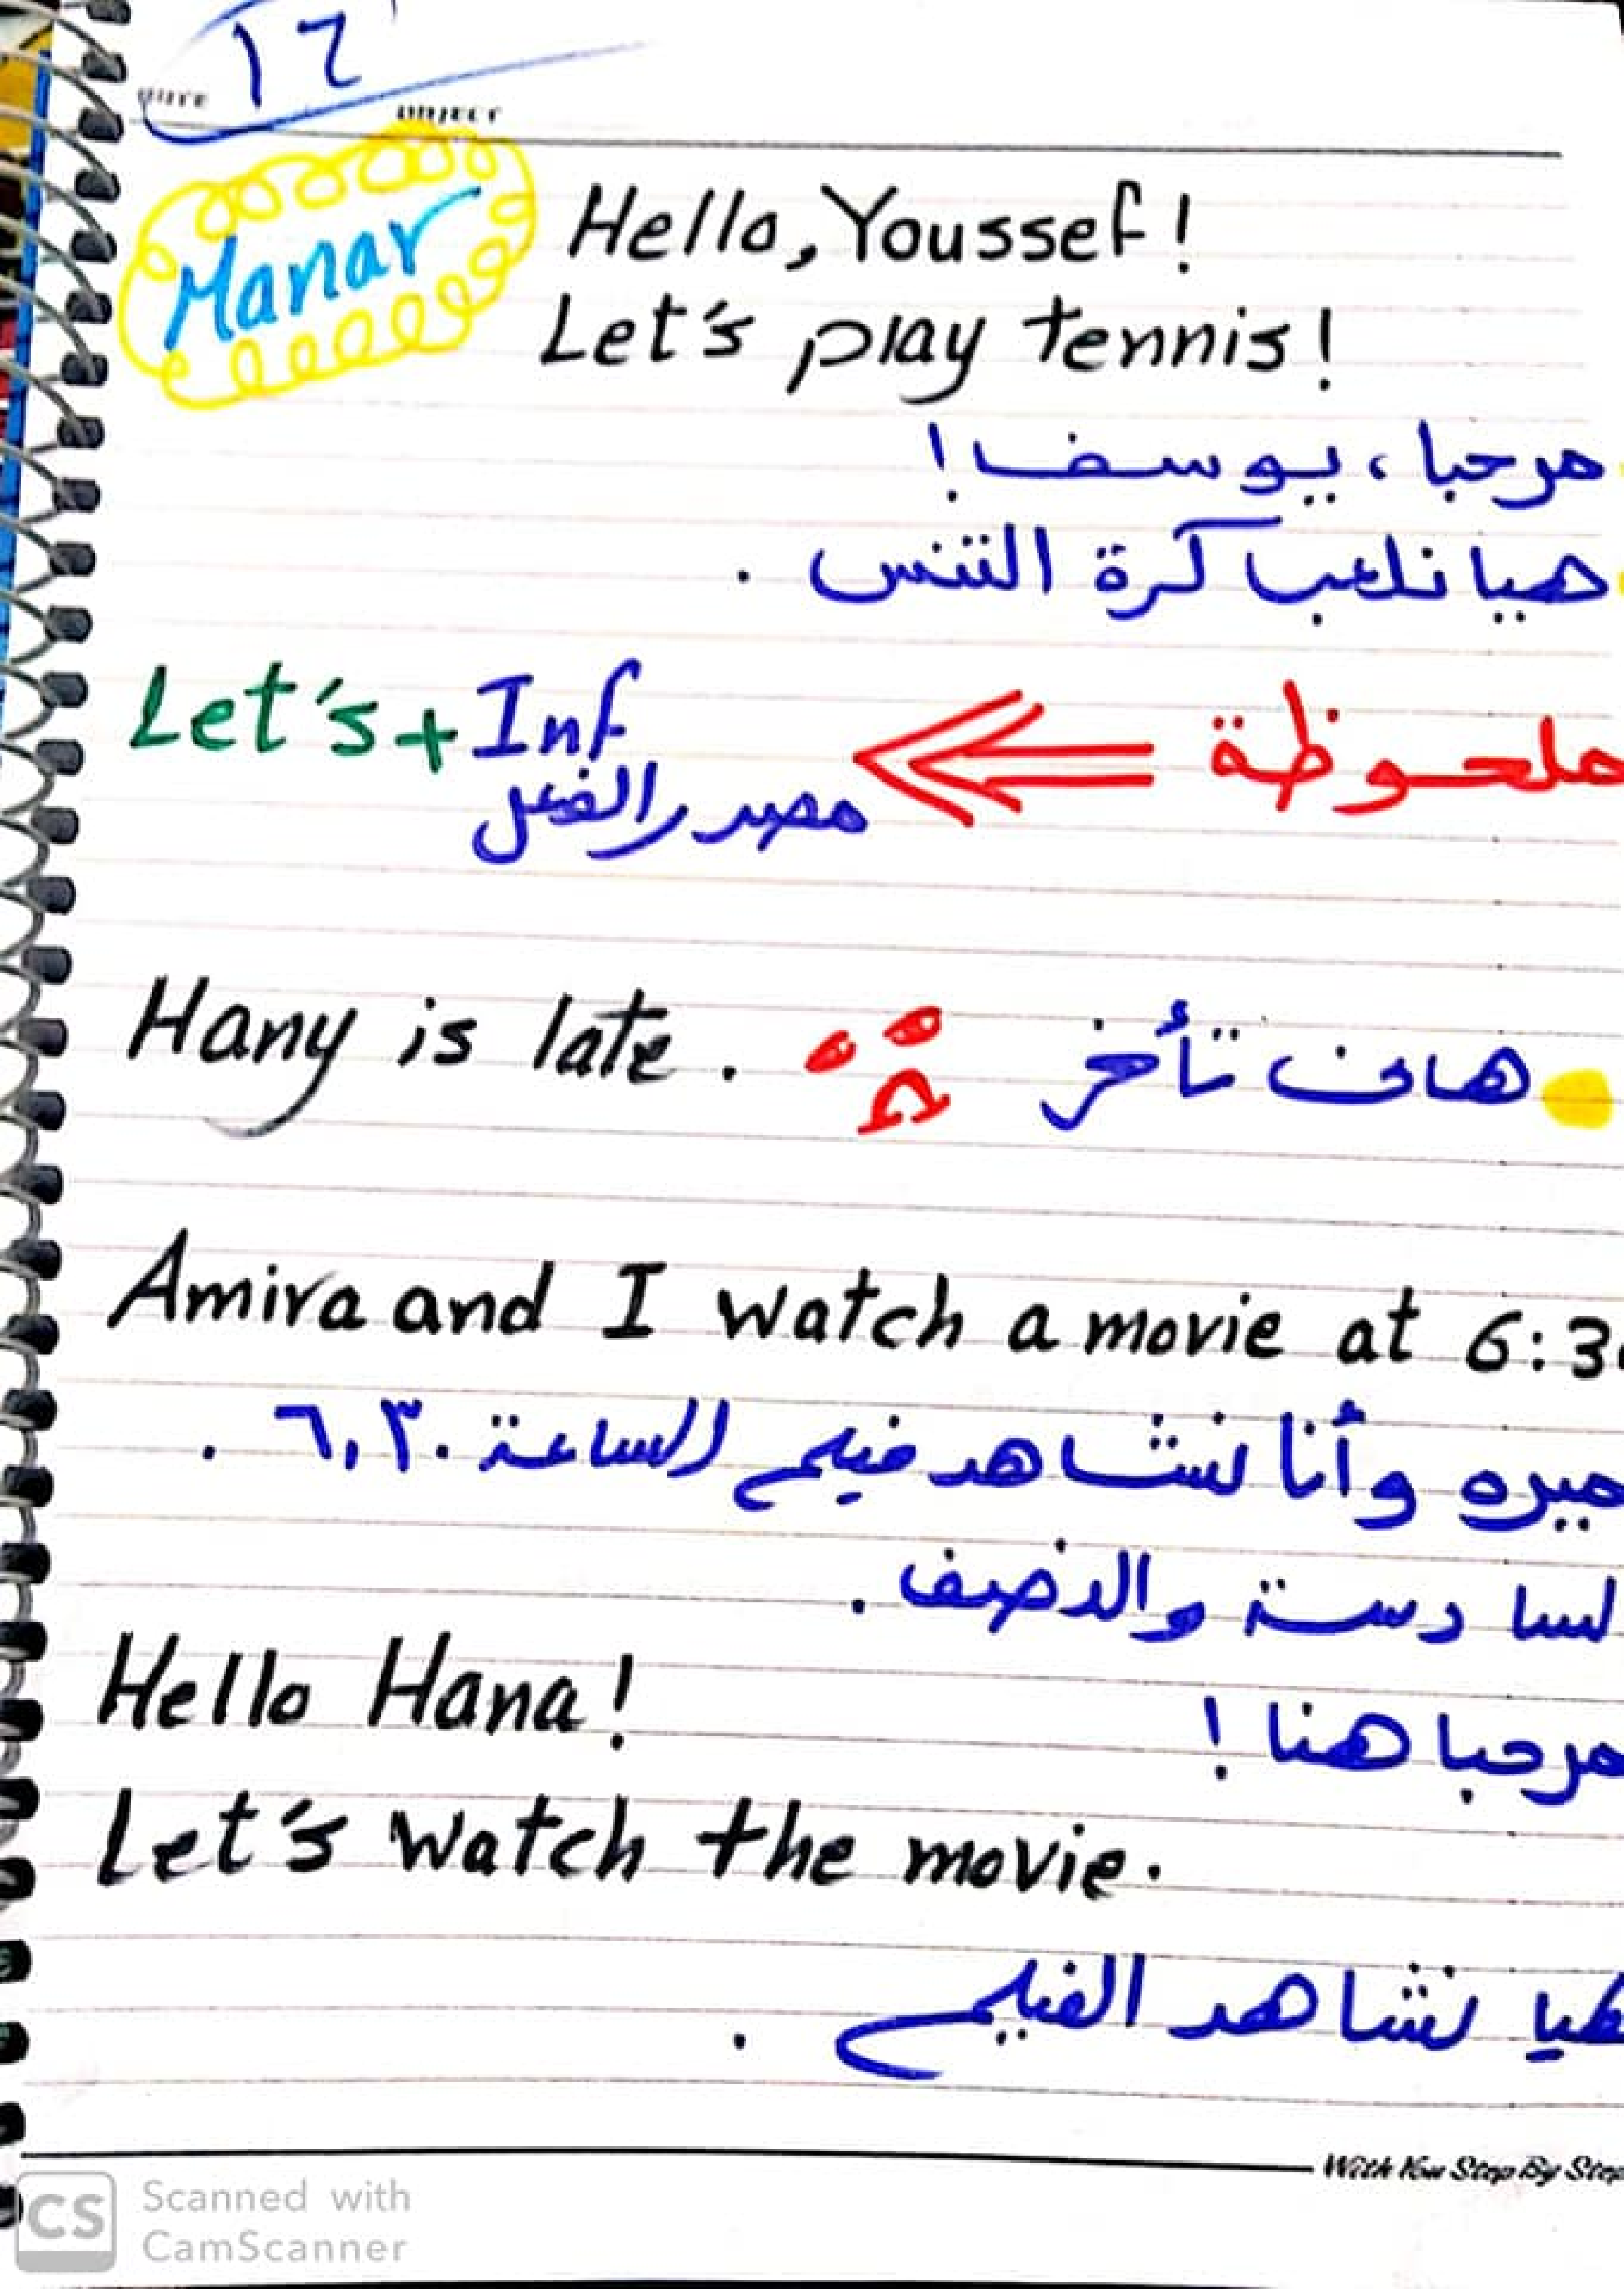 ١٦
DATE
SUBJECT
Manar
Hello, Youssef!
Let's play tennis!
مرحبا، يوسف!
هيا نلعب كرة التنس .
Let's + Inf
مصدر الفعل
ملحوظة
Hany is late .
هانى تأخر
Amira and I watch a movie at 6:30
ميره وأنا نشاهد فيلم الساعة ٦,٣٠ .
لسادسة والنصف .
Hello Hana!
مرحبا هنا !
Let's watch the movie.
هيا نشاهد الفيلم .
With You Step By Step
CS
Scanned with
CamScanner